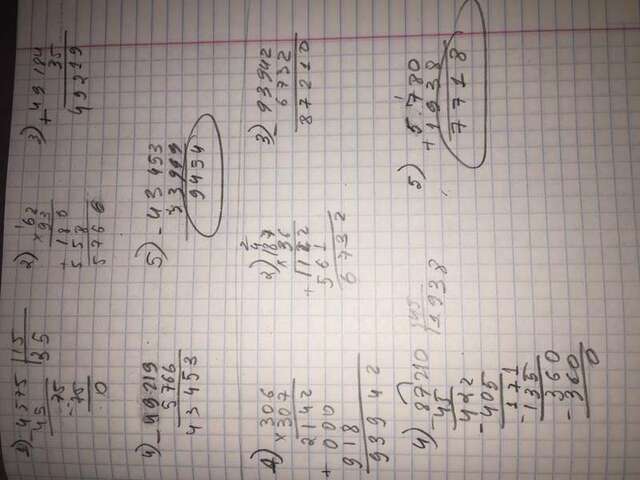 1) - 4575 | 15
45 | 35
75
- 75
0
2) 62
× 93
+ 180
558
5766
3) + 49184
35
49219
4) - 49219
5766
43453
5) - 43453
33999
9454
1) 306
× 307
2142
+ 000
918
93942
2) 187
× 36
+ 1122
561
6732
3) - 93942
6732
87210
4) 87210 | 45
- 45 | 1938
422
- 405
171
- 135
360
- 360
0
5) 5780
+ 1938
7718